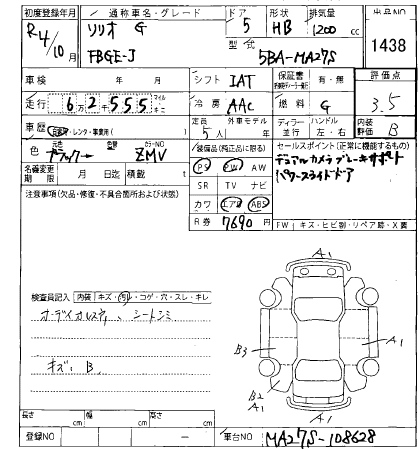 初度登録年月 R4/10月
通称車名・グレード ソリオ G
ドア 5
形状 HB
排気量 1200 cc
出品NO 1438
FBGE-J
型式 5BA-MA27S
車検 年 月
シフト IAT
保証書 有・無
評価点 3.5
走行 62555 マイル キロ
冷房 AAC
燃料 G
車歴 自家用・レンタ・事業用( )
定員 5人
外車モデル 年
ディーラー 並行
ハンドル 左・右
内装評価 B
色 元色 ブラック→ 色替 カラーNO ZMV
装備品(純正品に限る)
PS PW AW
SR TV ナビ
カワ エアB ABS
R券 7690円
セールスポイント(正常に機能するもの)
デュアルカメラブレーキサポート
パワースライドドア
名義変更期限 月 日迄
積載 t
注意事項(欠品・修復・不具合箇所および状態)
FW キズ・ヒビ割・リペア跡・X裏
検査員記入 内装 キズ・汚レ・コゲ・穴・スレ・キレ
オーディオカレスナ、シートシミ
キズ、B、
A1
A1
B3
B2
A1
A1
長さ cm 幅 cm 高さ cm
登録NO ー
車台NO MA27S-108628